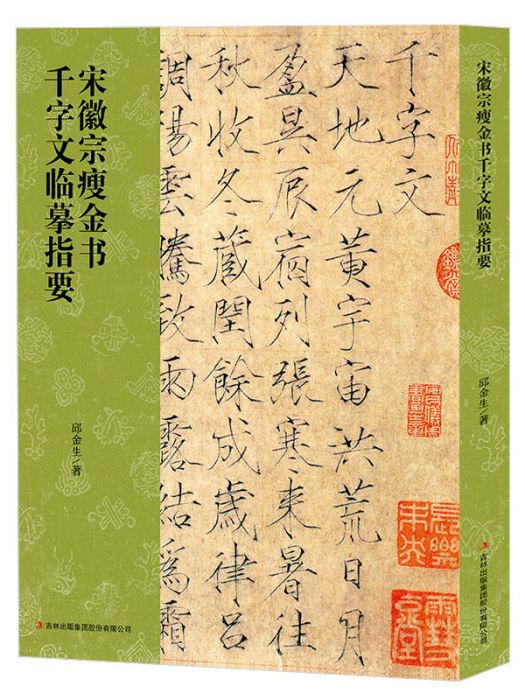 宋徽宗瘦金书
千字文临摹指要
邱金生/著
吉林出版集团股份有限公司
千字文
天地元黄宇宙洪荒日月
盈昃辰宿列張寒来暑往
秋收冬藏閏餘成歲律呂
調陽雲騰致雨露結為霜
宋徽宗瘦金书千字文临摹指要
邱金生/著
吉林出版集团股份有限公司